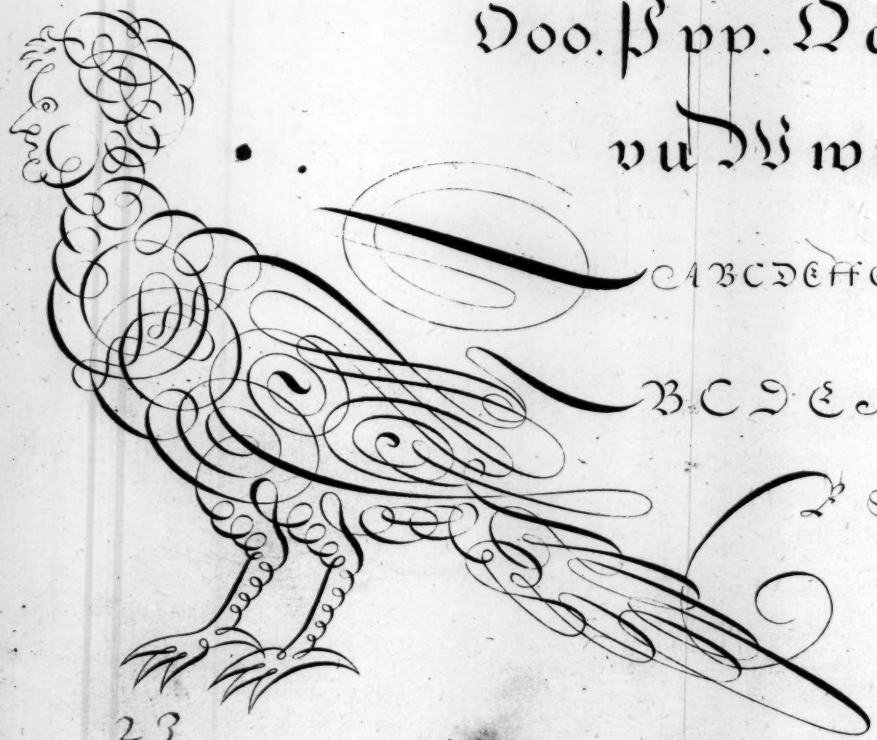 Ooo. P pp. Q
vu W w
A B C D E ff
B C D E
P
23